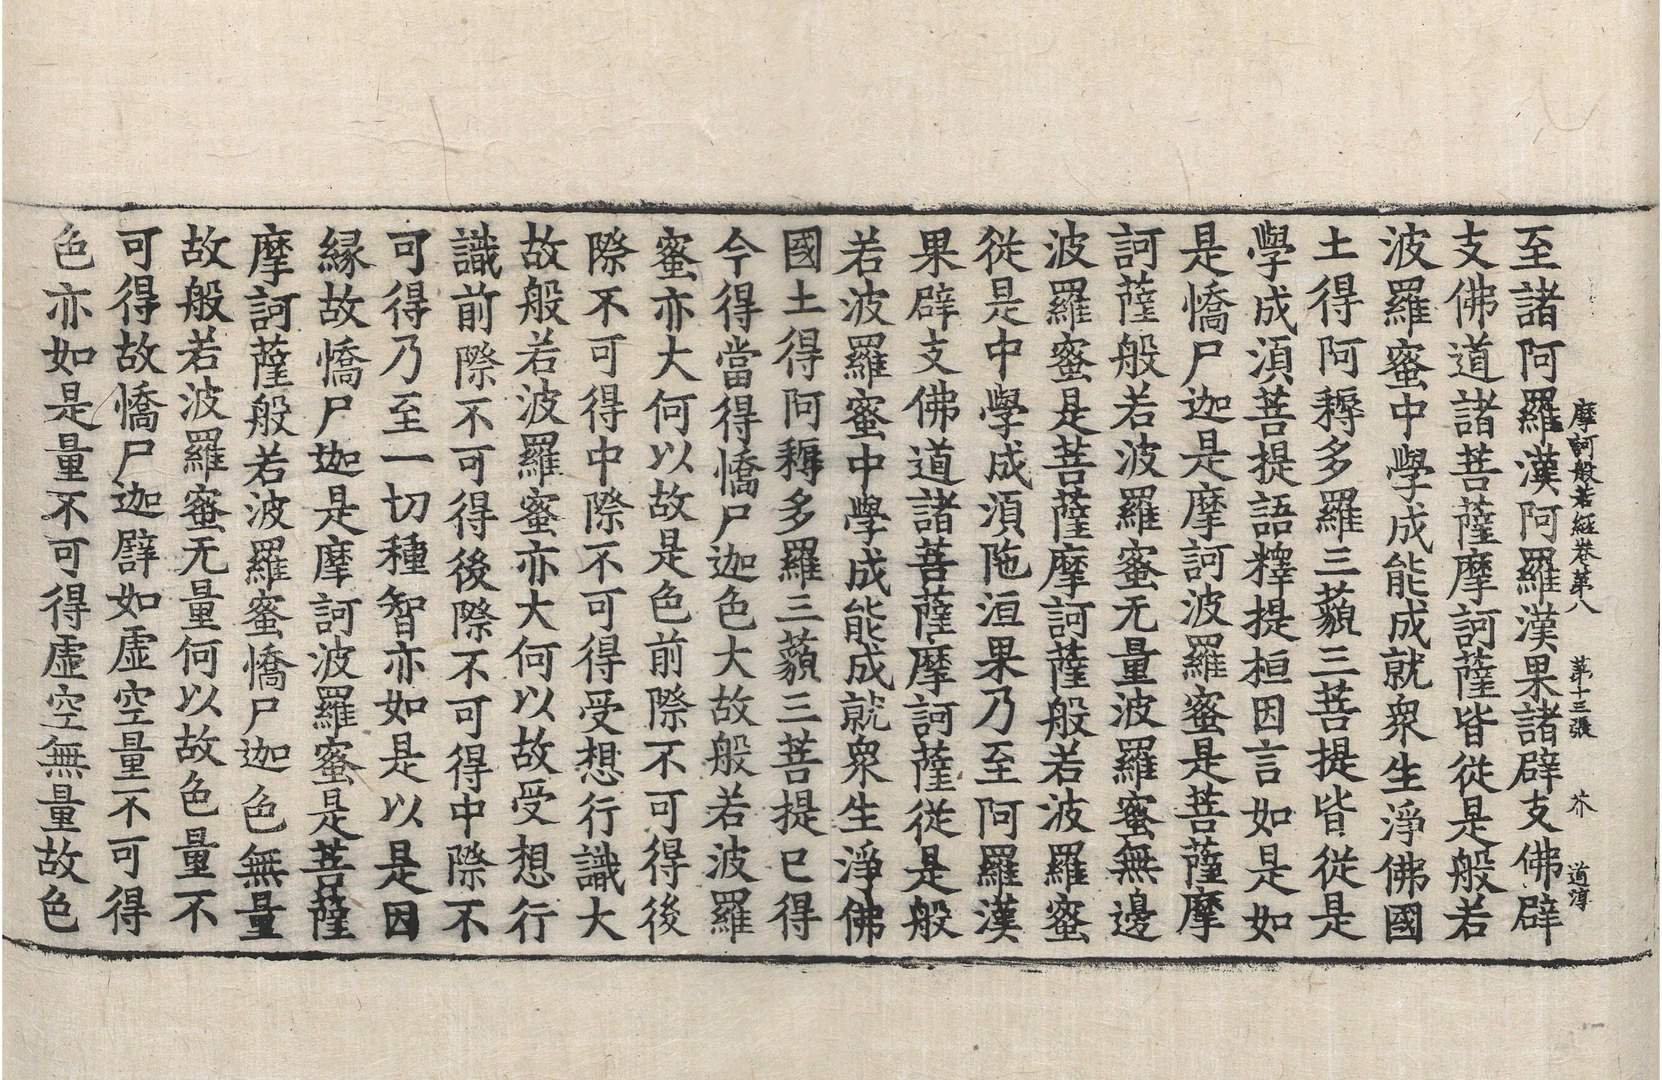 摩訶般若經卷第八 第十三張 芥 道淳
至諸阿羅漢阿羅漢果諸辟支佛辟
支佛道諸菩薩摩訶薩皆從是般若
波羅蜜中學成能成就衆生淨佛國
土得阿耨多羅三藐三菩提皆從是
學成湏菩提語釋提桓因言如是如
是憍尸迦是摩訶波羅蜜是菩薩摩
訶薩般若波羅蜜无量波羅蜜無邊
波羅蜜是菩薩摩訶薩般若波羅蜜
從是中學成湏陁洹果乃至阿羅漢
果辟支佛道諸菩薩摩訶薩從是般
若波羅蜜中學成能成就衆生淨佛
國土得阿耨多羅三藐三菩提已得
今得當得憍尸迦色大故般若波羅
蜜亦大何以故是色前際不可得後
際不可得中際不可得受想行識大
故般若波羅蜜亦大何以故受想行
識前際不可得後際不可得中際不
可得乃至一切種智亦如是以是因
緣故憍尸迦是摩訶波羅蜜是菩薩
摩訶薩般若波羅蜜憍尸迦色無量
故般若波羅蜜无量何以故色量不
可得故憍尸迦譬如虛空量不可得
色亦如是量不可得虛空無量故色